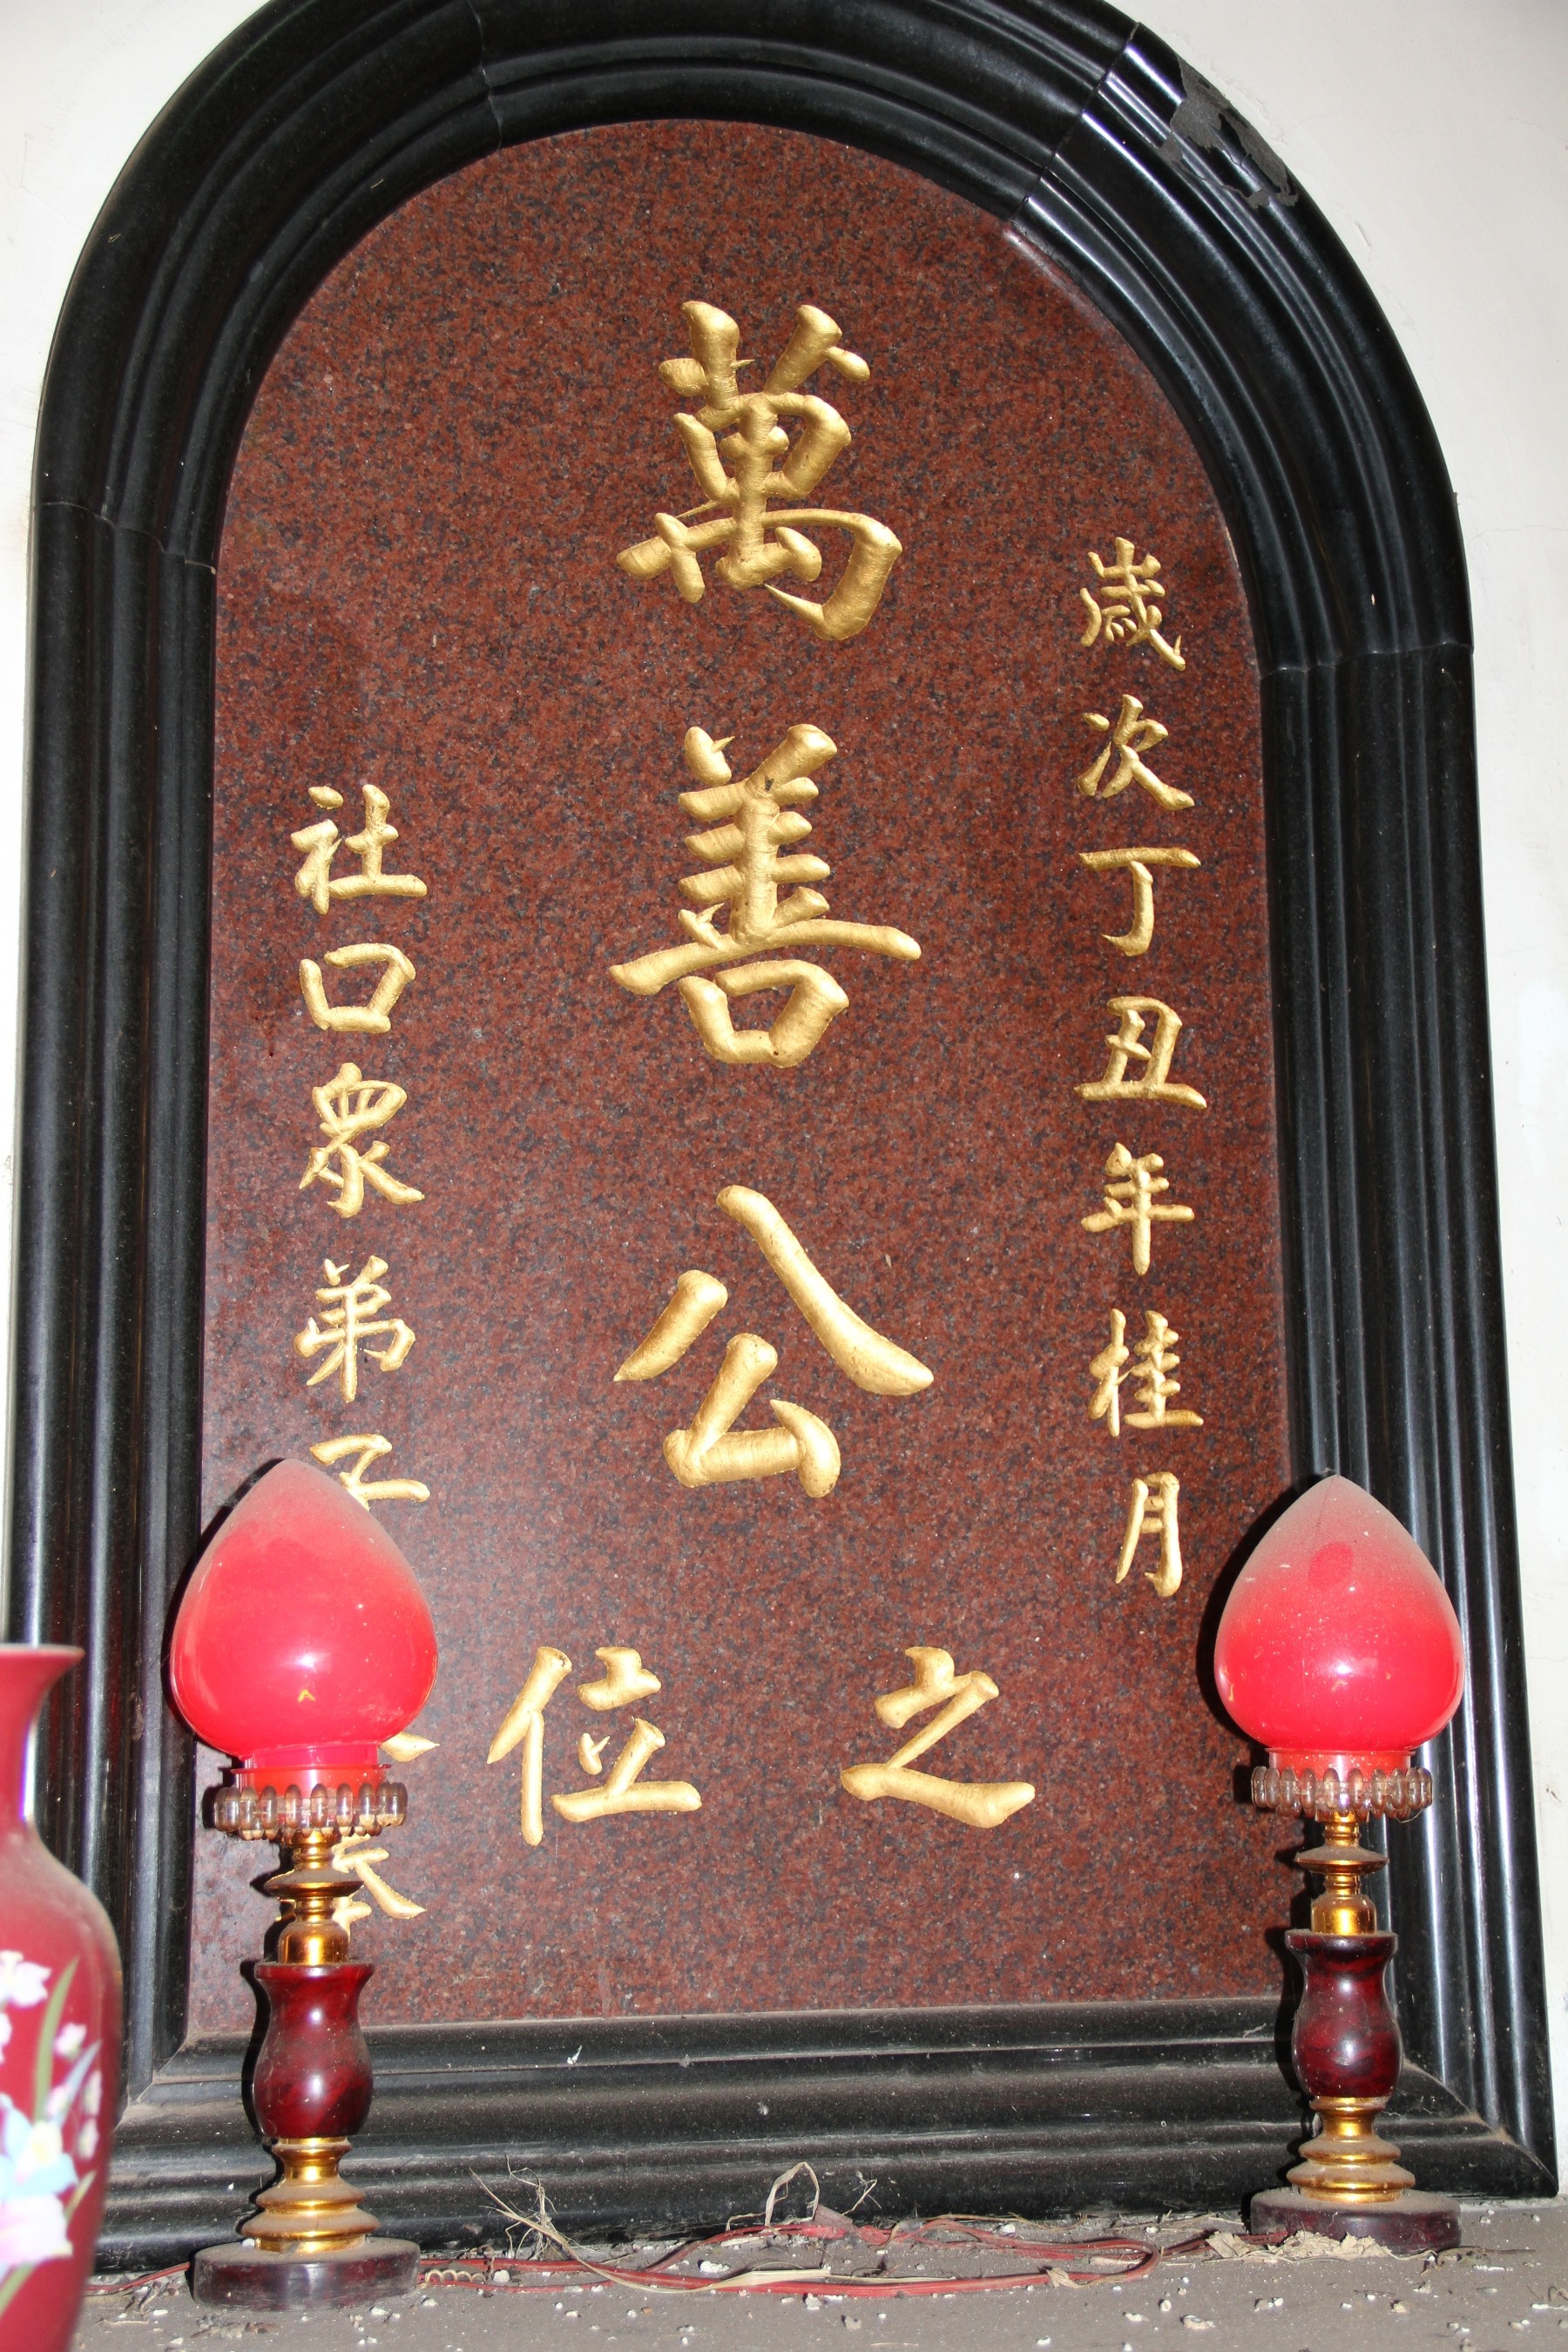 歲次丁丑年桂月
萬善公
之位
社口眾弟子